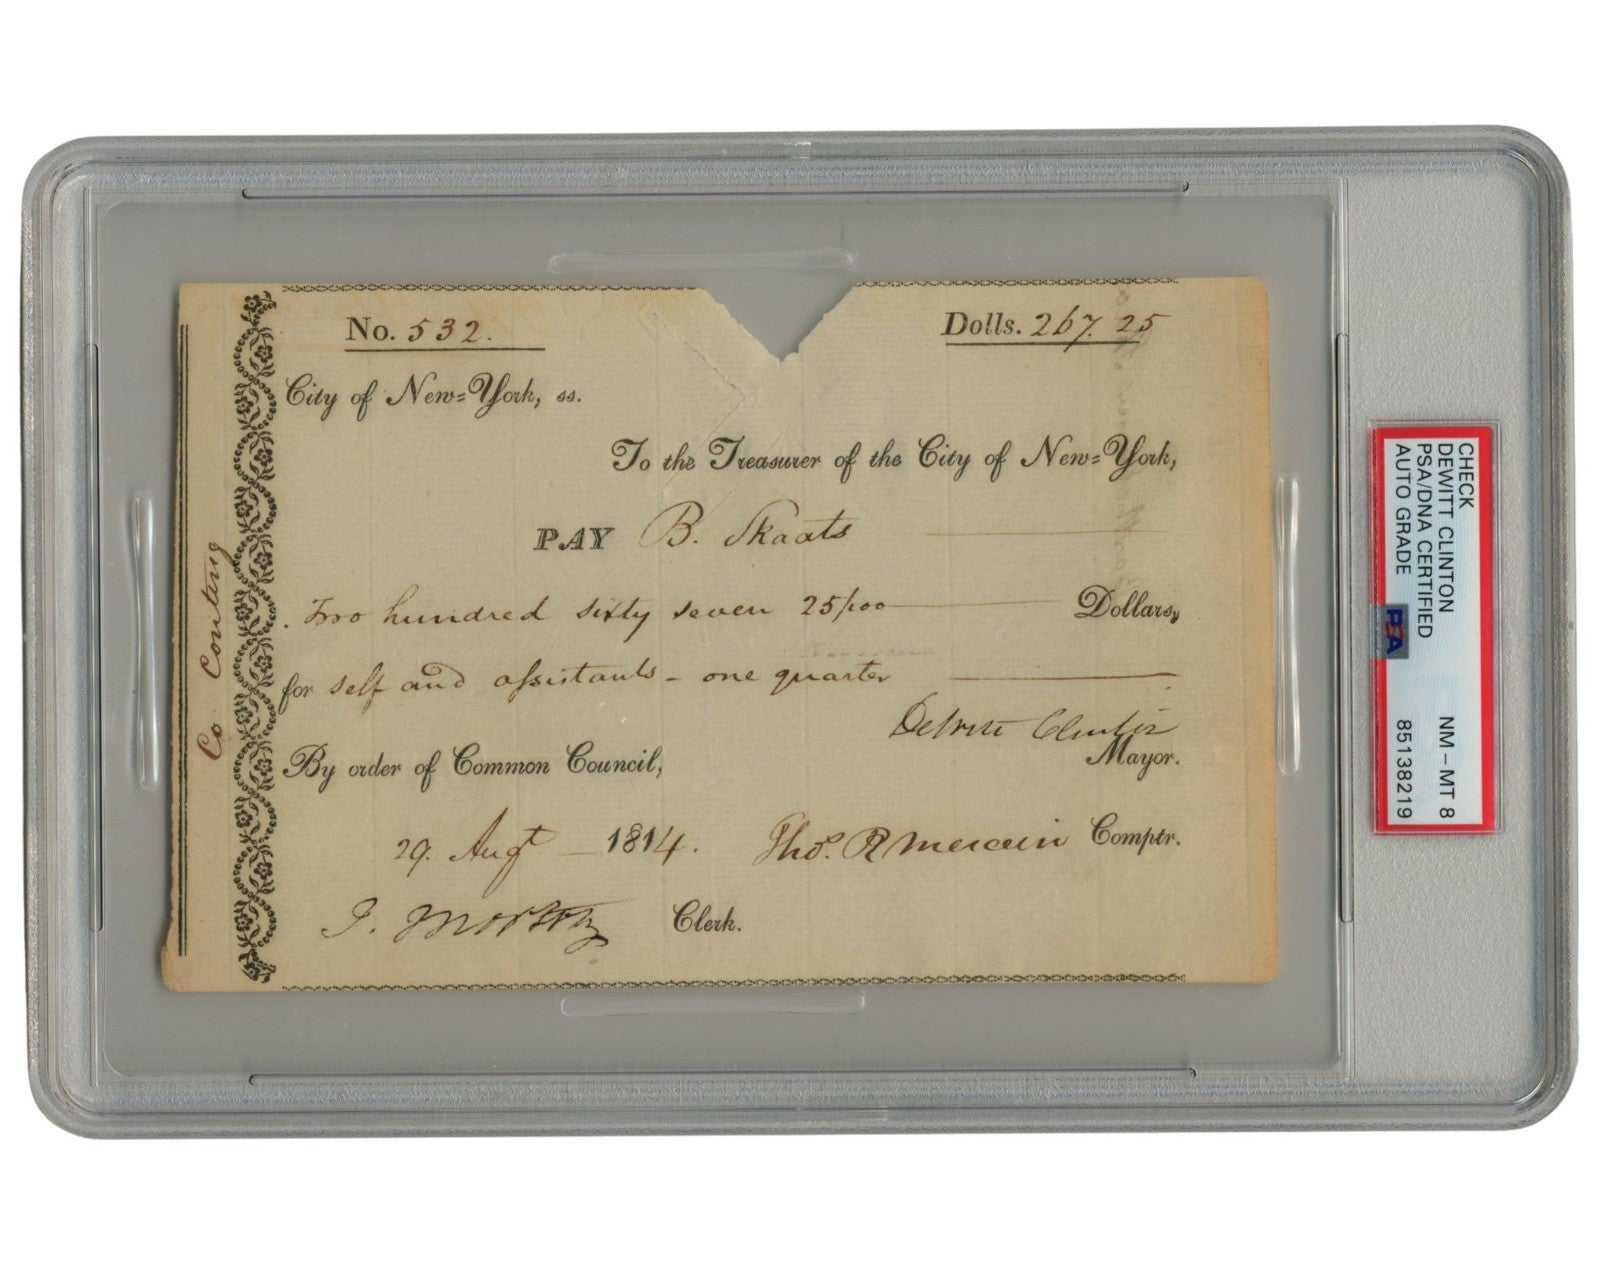 No. 532.
Dolls. 267.25
City of New=York, ss.
To the Treasurer of the City of New=York,
PAY B. Skaats
Two hundred sixty seven 25/100 Dollars,
for self and assistants - one quarter
Dewitt Clinton
By order of Common Council,
Mayor.
29. Augt 1814. Thos. R Mercein Comptr.
J. Morton Clerk.
Co
CHECK
DEWITT CLINTON
PSA/DNA CERTIFIED
AUTO GRADE
PSA
NM-MT 8
85138219